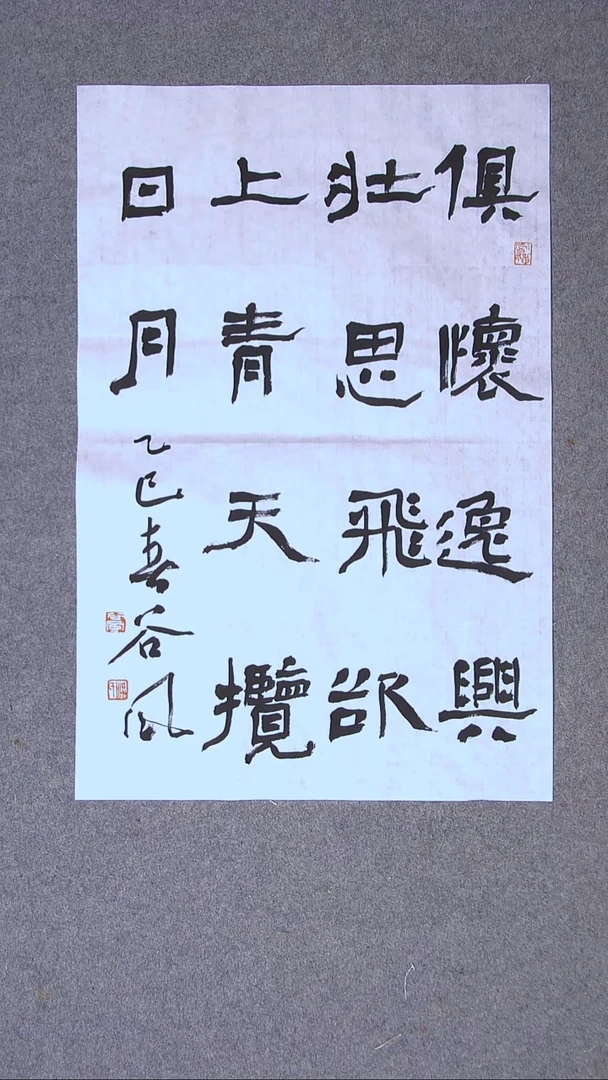 俱懷逸興
壯思飛欲
上青天攬
日月
乙巳春谷風